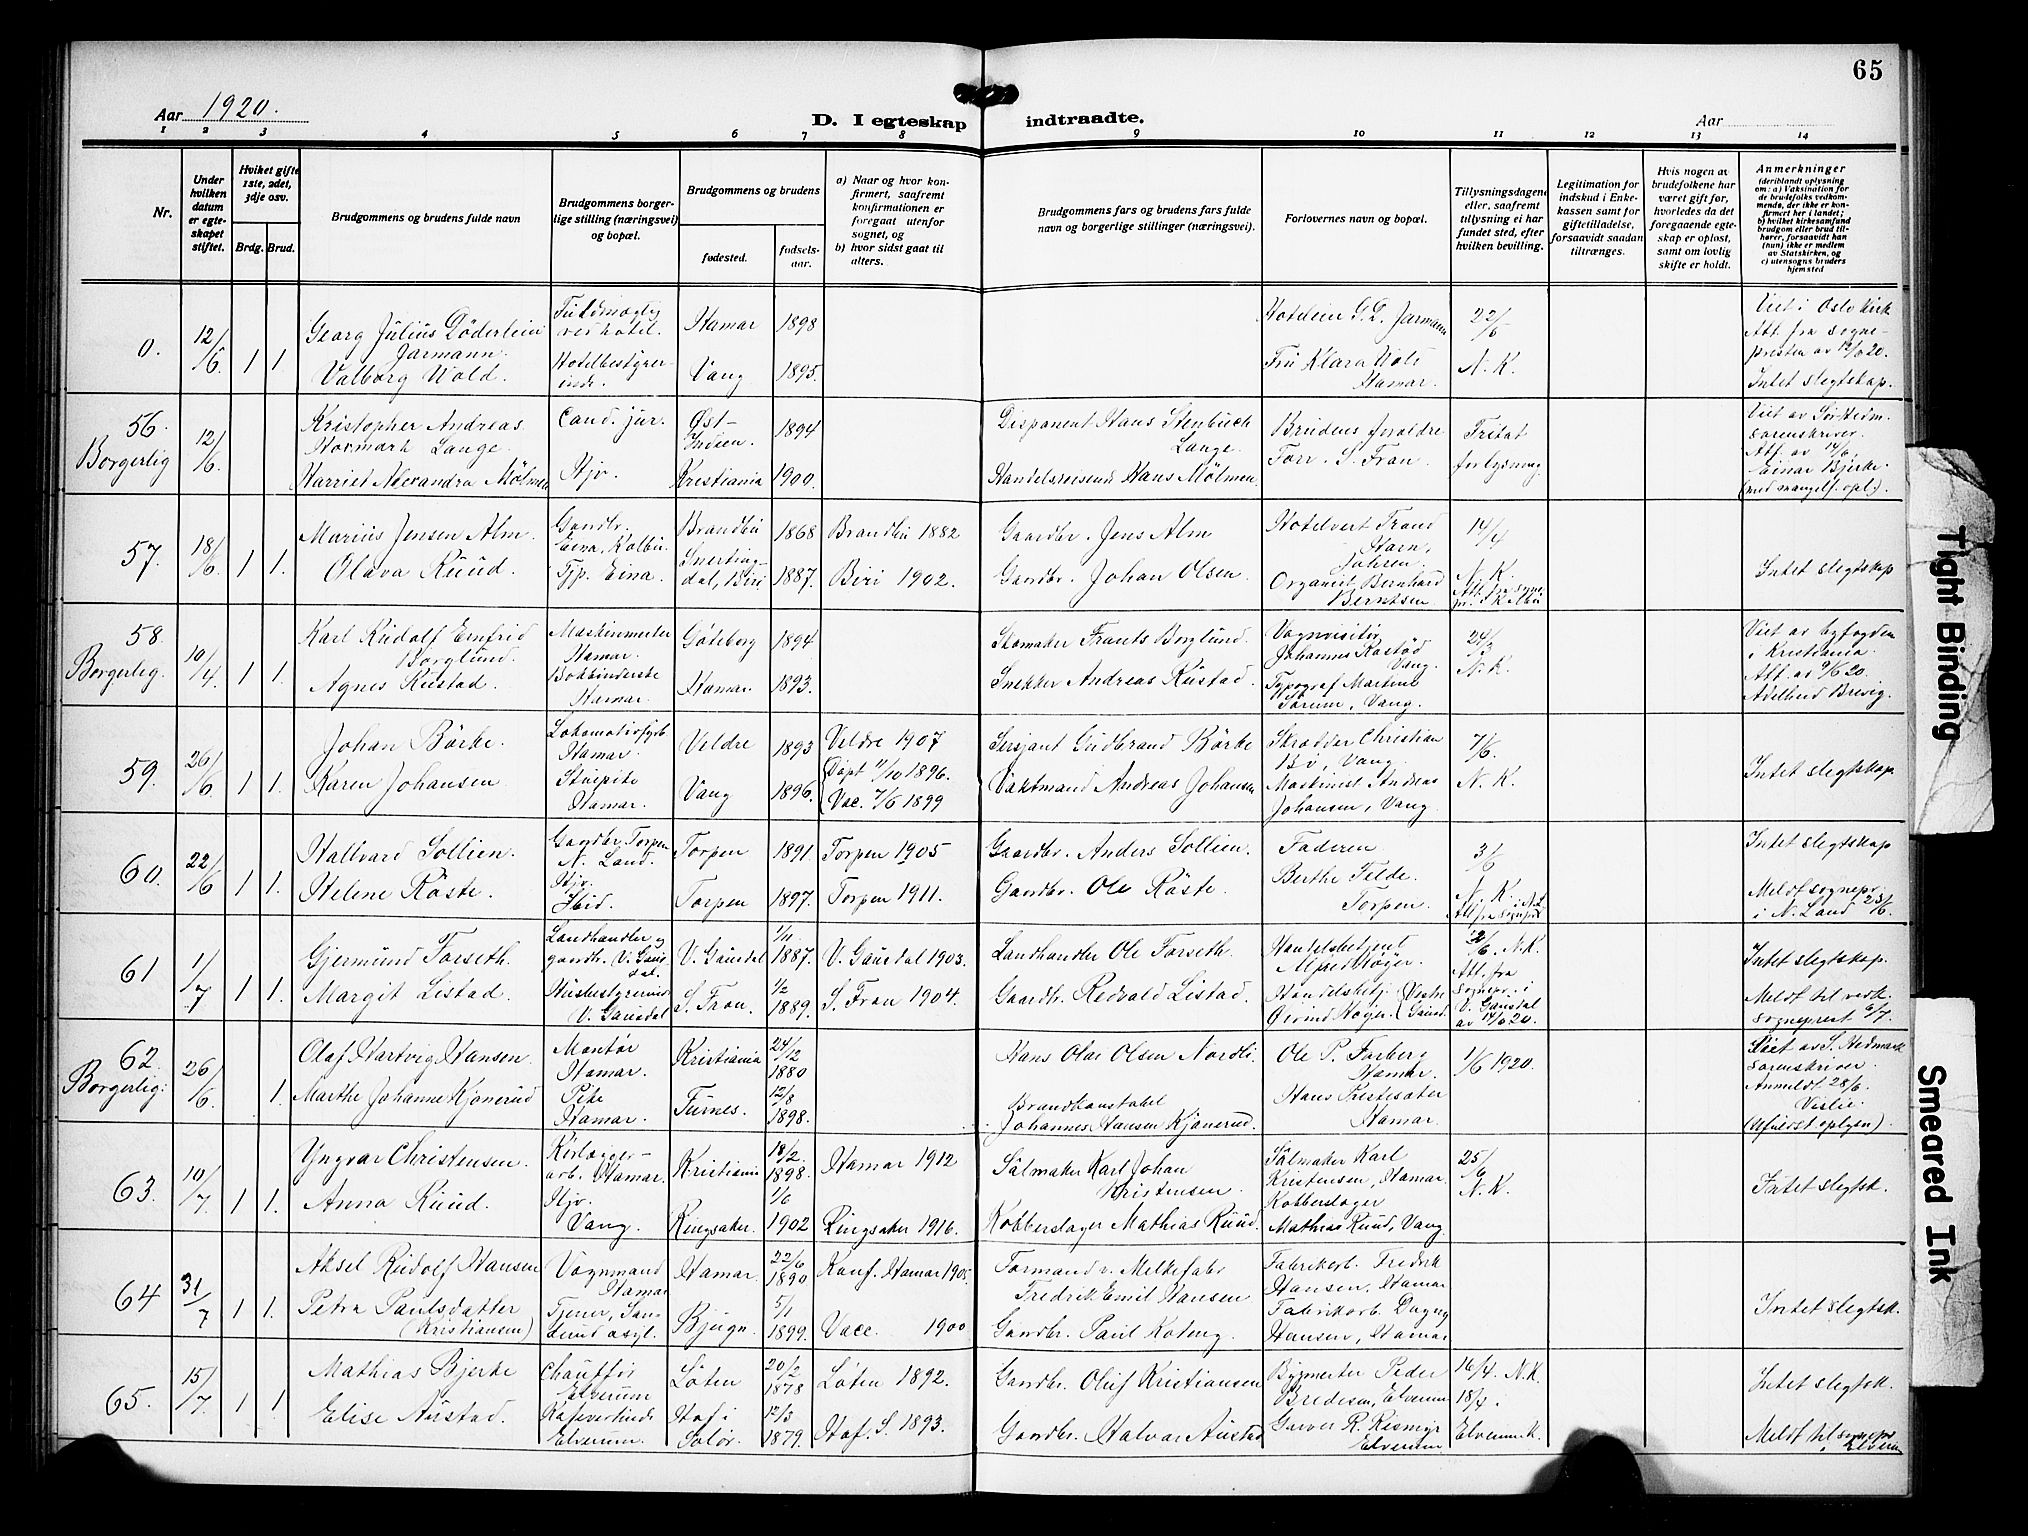 65
Aar 1920.
D. I egteskap indtraadte.
Aar
1 2 3 4 5 6 7 8 9 10 11 12 13 14
Nr.
Under hvilken datum er egteskapet stiftet.
Hvilket gifte 1ste, 2det, 3dje osv.
Brdg. Brud.
Brudgommens og brudens fulde navn
Brudgommens borgerlige stilling (næringsvei) og bopæl.
Brudgommens og brudens
fødested.
fødselsaar.
a) Naar og hvor konfirmert, saafremt konfirmationen er foregaat utenfor sognet, og
b) hvor sidst gaat til alters.
Brudgommens fars og brudens fars fulde navn og borgerlige stillinger (næringsvei).
Forlovernes navn og bopæl.
Tillysningsdagene eller, saafremt tillysning ei har fundet sted, efter hvilken bevilling.
Legitimation for indskud i Enkekassen samt for giftetilladelse, forsaavidt saadan tiltrænges.
Hvis nogen av brudefolkene har været gift før, hvorledes da det foregaaende egteskap er opløst, samt om lovlig skifte er holdt.
Anmerkninger
(deriblandt oplysning om: a) Vaksination for de brudefolks vedkommende, der ikke er konfirmert her i landet; b) hvilket kirkesamfund brudgom eller brud tilhører, forsaavidt han (hun) ikke er medlem av Statskirken, og c) utensogns bruders hjemsted
0. 12/6 1 1.
Georg Julius Döderlein Jarmann.
Valborg Wold.
ved hotel.
Hotelbestyrerinde.
Hamar 1898
Vang 1895.
G. D. Jarmann
Fru Klara
Hamar.
22/5
N. K.
Viet i Oslo kirk
Att. fra sogne-
presten av 12/6 20.
Intet slegtskap.
56. Borgerlig 12/6
Kristopher Andreas
Normark Lange.
Harriet Alexandra Mölmen
Cand. jur.
Hjv.
Øst-Indien. 1894
Kristiania 1900.
Disponent Hans Stenbuch Lange.
Handelsreisend Hans Mölmen
Brudens foraldre
Forv. S. Fron.
Fritat
forlysning
Viet av Sør-Hedm.
sorenskriver.
Att. av 14/6,
Einar Bjerke.
(med mangelf. opl.).
57. 18/6 1 1.
Marius Jensen Alm.
Olava Ruud.
Gaardbr. Eina, Kolbu.
Tjp. Eina.
Brandbu 1868
Snertingdal, Biri 1887.
Brandbu 1882
Biri 1902.
Gaardbr. Jens Alm
Gaardbr. Johan Olsen.
Hotelvert Trand
Organist Bernhard Berntsen.
14/4
N. K.
Intet slegtskap
58. Borgerlig. 10/4 1 1.
Karl Rudolf Emfrid Borglund.
Agnes Rustad.
Maskinmester Hamar.
Hamar.
Göteborg 1894
Hamar. 1893.
Skomaker Frants Borglund.
Snekker Andreas Rustad.
Vognvisitör
Johannes Kastöd Vang.
Typograf Martens
Sörum, Vang.
24/3
N. K.
Viet av byfogden
i Kristiania.
Att. av 9/6 20.
Adelbert Brevig.
59. 26/6 1 1.
Johan Börke.
Karen Johansen
Lokomotivfyrb Hamar.
Stuepike Hamar.
Veldre 1893
Vang 1896.
Veldre 1907
Döpt 11/10 1896.
Vac. 7/6 1899
Sersjant Gudbrand Börke
Vaktmand Andreas Johansen
Skrædder Christian
Bö, Vang.
Maskinist Andreas
Johansen, Vang.
7/6
N. K.
Intet slegtskap.
60. 22/6 1 1.
Hallvard Sollien.
Helene Röste.
Gaardbr, Torpen N. Land.
Hjv. Ibid.
Torpen 1891.
Torpen 1897.
Torpen 1905
Torpen 1911.
Gaardbr. Anders Sollien.
Gaardbr. Ole Röste.
Faderen
Berthe Felde.
Torpen.
3/6
N. K.
Intet slegtskap
Meldt sognepr.
i N. Land 23/6.
61 1/7 1 1.
Gjermund Forseth.
Margit Listad.
Landhandler og gaardb. V. Gausdal.
Husbestyrerinde V. Gausdal
V. Gausdal 1/11 1887.
S. Fron. 1/2 1889.
V. Gausdal 1903.
S. Fron 1904.
Landhandler Ole Forseth.
Gaardbr. Redvald Listad.
Handelsbetjent
Alfred Höjer.
Handelsbetj.
Öivind Höjer.
Vestre Gausd.
12/6. N. K.
Att. fra
sognepr. i
V. Gausdal
av 14/6 20.
Intet slegtskap.
Meldt til vedk.
sogneprest 6/7.
62. Borgerlig: 26/6 1.
Olaf Hartvig Hansen.
Marthe Johanne Kjönerud
Montör Hamar.
Pike Hamar.
Kristiania 24/12 1880
Furnes. 12/8 1898.
Hans Olai Olsen Nordli.
Brandkonstabel
Johannes Hansen Kjönerud.
Ole P. Farberg
Hamar.
Hans
Hamar.
1/6 1920.
Viet av S. Hedmark
sorenskriver.
Anmeldt 28/6.
Vislie.
63. 10/7 1 1.
Yngvar Christensen.
Anna Ruud.
Rörlægger-arb. Hamar.
Hjv. Vang.
Kristiania 18/2 1898.
Ringsaker. 1/6 1902
Hamar 1912
Ringsaker 1916.
Salmaker Karl Johan
Kristensen.
Kobberslager Mathias Ruud.
Salmaker Karl
Kristensen, Hamar.
Kobberslager
Mathias Ruud, Vang
25/6
N. K.
Intet slegtsk.
64 31/7 1 1.
Aksel Rudolf Hansen
Petra Paulsdatter
(Kristiansen)
Vognmand Hamar
Tjener, Sanderud asyl.
Hamar. 22/6 1890
Bjugn. 5/1 1899.
Konf. Hamar 1905.
Vacc. 1900
Formand v. Melkefabr
Fredrik Emil Hansen
Gaardbr. Paul Koteng.
Fabrikarb. Fredrik
Hansen, Hamar
Fabrikarb. Dagny
Hansen, Hamar
Intet slegtsk.
65. 15/7 1 1.
Mathias Bjerke
Elise Austad.
Chauffør Elverum
Kafevertinde Elverum.
Löten 20/2 1878
Hof i Solör. 12/3 1879.
Löten 1892.
Hof. S. 1893.
Gaardbr. Oluf Kristiansen
Gaardbr. Halvar Austad
Bygmester Peder
Bredesen, Elverum
Garver R. Rismyr
Elverum
16/4. N. K.
18/4 i
Elverum K.
Intet slegtsk.
Meldt til sognepr
i Elverum
Tight Binding
Smeared Ink